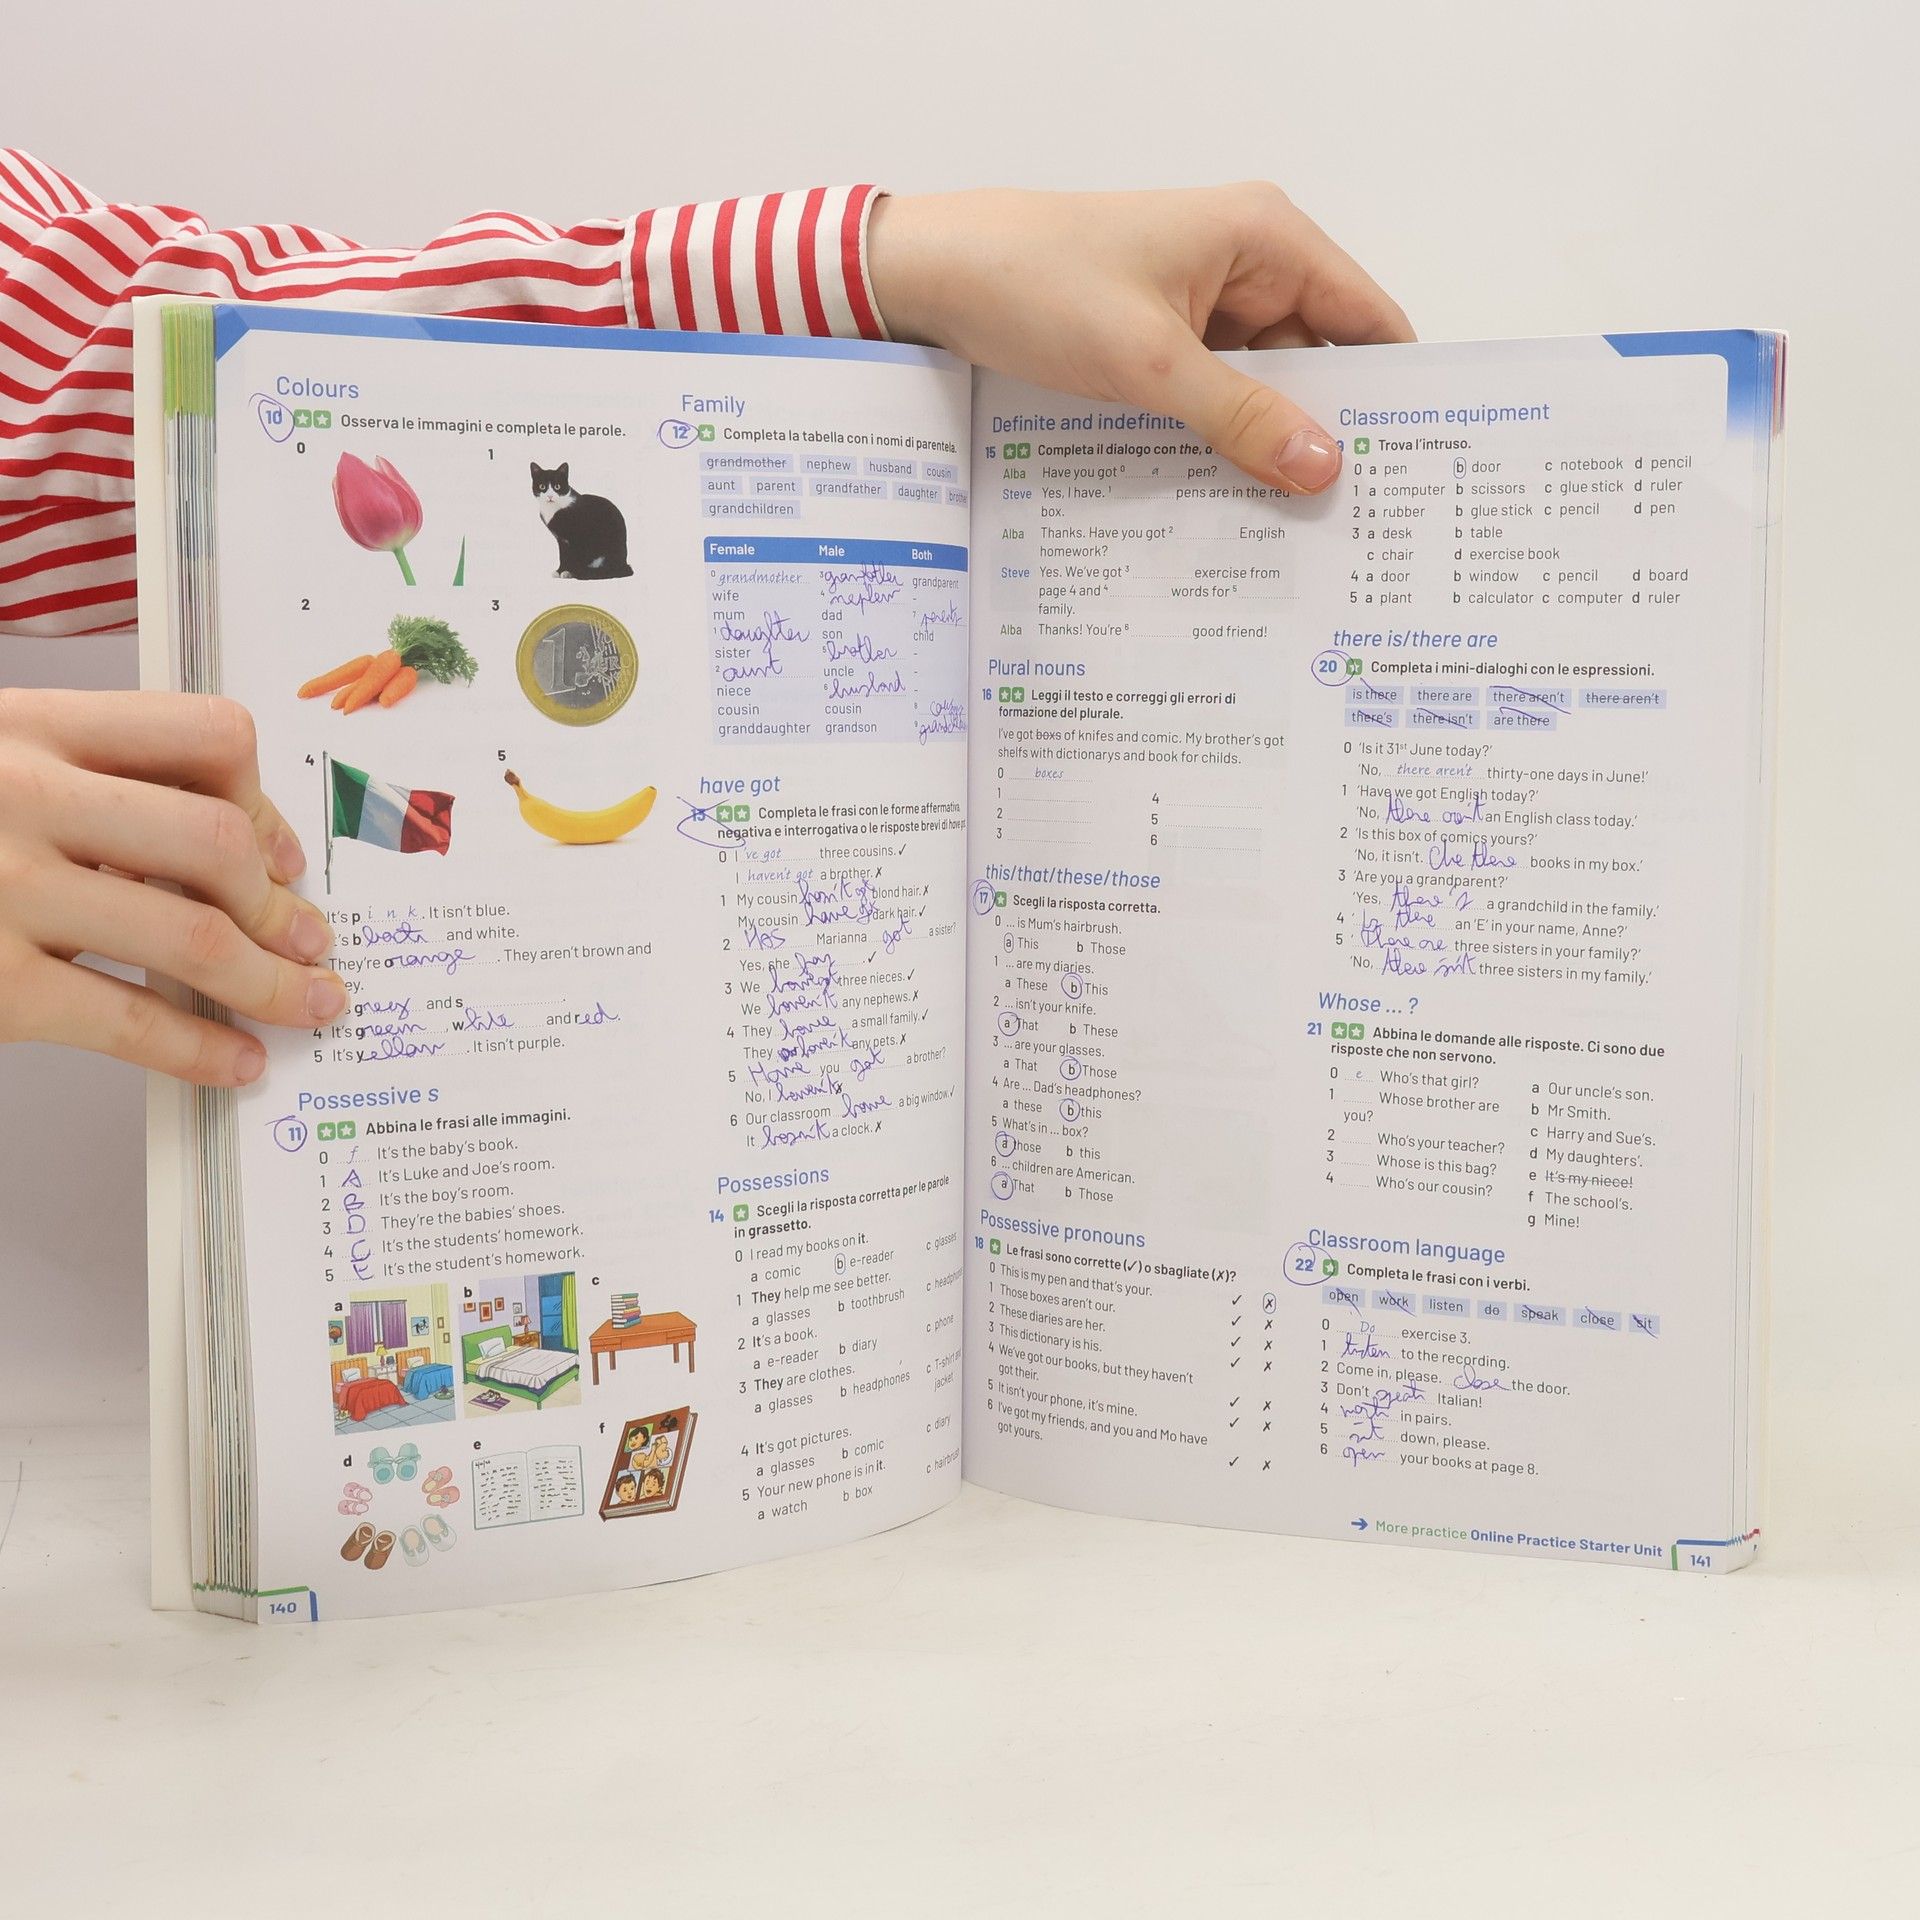 Colours
10 Osserva le immagini e completa le parole.
0
1
2
3
4
5
It's pink. It isn't blue.
's b and white.
They're orange. They aren't brown and
ey.
and s
4 It's green, white and red.
5 It's yellow. It isn't purple.
Possessive s
11 Abbina le frasi alle immagini.
0 f It's the baby's book.
1 A It's Luke and Joe's room.
2 B It's the boy's room.
3 D They're the babies' shoes.
4 C It's the students' homework.
5 E It's the student's homework.
a
b
c
d
e
f
140
Family
12 Completa la tabella con i nomi di parentela.
grandmother nephew husband cousin
aunt parent grandfather daughter
grandchildren
Female Male Both
0 grandmother 3 grandparent
wife 4 nephew -
mum dad 7 parent
1 daughter son child
sister 5 brother -
2 aunt uncle -
niece 6 husband -
cousin cousin 8
granddaughter grandson 9
have got
13 Completa le frasi con le forme affermativa,
negativa e interrogativa o le risposte brevi di have got.
0 I 've got three cousins. ✓
I haven't got a brother. ✗
1 My cousin blond hair. ✗
My cousin have got dark hair. ✓
2 Has Marianna got a sister?
Yes, she has. ✓
3 We three nieces. ✓
We haven't any nephews. ✗
4 They have a small family. ✓
They haven't any pets. ✗
5 Have you got a brother?
No, I haven't. ✗
6 Our classroom have a big window. ✓
It hasn't a clock. ✗
Possessions
14 Scegli la risposta corretta per le parole
in grassetto.
0 I read my books on it.
a comic b e-reader c glasses
1 They help me see better.
a glasses b toothbrush c headphones
2 It's a book.
a e-reader b diary c phone
3 They are clothes.
a glasses b headphones c T-shirt and
jacket
4 It's got pictures.
a glasses b comic c diary
5 Your new phone is in it.
a watch b box c hairbrush
Definite and indefinite
15 Completa il dialogo con the, a
Alba Have you got 0 a pen?
Steve Yes, I have. 1 pens are in the red
box.
Alba Thanks. Have you got 2 English
homework?
Steve Yes. We've got 3 exercise from
page 4 and 4 words for 5
family.
Alba Thanks! You're 6 good friend!
Plural nouns
16 Leggi il testo e correggi gli errori di
formazione del plurale.
I've got boxs of knifes and comic. My brother's got
shelfs with dictionarys and book for childs.
0 boxes
1 4
2 5
3 6
this/that/these/those
17 Scegli la risposta corretta.
0 ... is Mum's hairbrush.
a This b Those
1 ... are my diaries.
a These b This
2 ... isn't your knife.
a That b These
3 ... are your glasses.
a That b Those
4 Are ... Dad's headphones?
a these b this
5 What's in ... box?
a those b this
6 ... children are American.
a That b Those
Possessive pronouns
18 Le frasi sono corrette (✓) o sbagliate (✗)?
0 This is my pen and that's your. ✓ ✗
1 Those boxes aren't our. ✓ ✗
2 These diaries are her. ✓ ✗
3 This dictionary is his. ✓ ✗
4 We've got our books, but they haven't
got their. ✓ ✗
5 It isn't your phone, it's mine. ✓ ✗
6 I've got my friends, and you and Mo have
got yours. ✓ ✗
Classroom equipment
9 Trova l'intruso.
0 a pen b door c notebook d pencil
1 a computer b scissors c glue stick d ruler
2 a rubber b glue stick c pencil d pen
3 a desk b table
c chair d exercise book
4 a door b window c pencil d board
5 a plant b calculator c computer d ruler
there is/there are
20 Completa i mini-dialoghi con le espressioni.
is there there are there aren't there aren't
there's there isn't are there
0 'Is it 31st June today?'
'No, there aren't thirty-one days in June!'
1 'Have we got English today?'
'No, there aren't an English class today.'
2 'Is this box of comics yours?'
'No, it isn't. there books in my box.'
3 'Are you a grandparent?'
'Yes, there's a grandchild in the family.'
4 'Is there an 'E' in your name, Anne?'
5 'There are three sisters in your family?'
'No, there isn't three sisters in my family.'
Whose ... ?
21 Abbina le domande alle risposte. Ci sono due
risposte che non servono.
0 e Who's that girl?
1 Whose brother are
you?
2 Who's your teacher?
3 Whose is this bag?
4 Who's our cousin?
a Our uncle's son.
b Mr Smith.
c Harry and Sue's.
d My daughters'.
e It's my niece!
f The school's.
g Mine!
Classroom language
22 Completa le frasi con i verbi.
open work listen do speak close sit
0 Do exercise 3.
1 listen to the recording.
2 Come in, please. close the door.
3 Don't speak Italian!
4 work in pairs.
5 sit down, please.
6 open your books at page 8.
More practice Online Practice Starter Unit
141